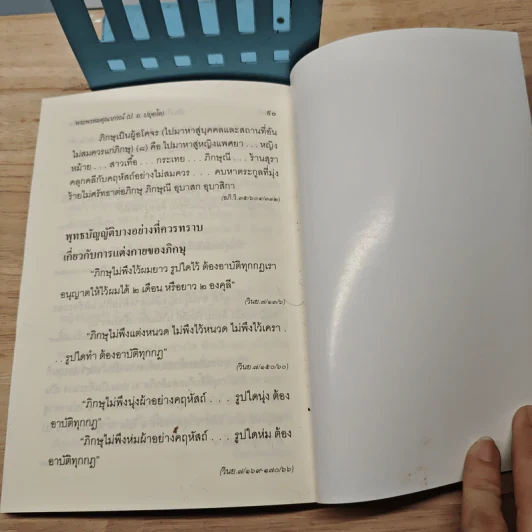 พระพรหมคุณาภรณ์ (ป. อ. ปยุตฺโต) ๕๐
ภิกษุเป็นผู้อโคจร (ไปมาหาสู่บุคคลและสถานที่อัน
ไม่สมควรแก่ภิกษุ) (๘) คือ ไปมาหาสู่หญิงแพศยา . . . หญิง
หม้าย . . . สาวเทื้อ . . . กระเทย . . . ภิกษุณี . . . ร้านสุรา
คลุกคลีกับคฤหัสถ์อย่างไม่สมควร . . . คบหาตระกูลที่มุ่ง
ร้ายไม่ศรัทธาต่อภิกษุ ภิกษุณี อุบาสก อุบาสิกา
(อภิ.วิ.๓๕/๖๐๑/๓๓๒)
พุทธบัญญัติบางอย่างที่ควรทราบ
เกี่ยวกับการแต่งกายของภิกษุ
“ภิกษุไม่พึงไว้ผมยาว รูปใดไว้ ต้องอาบัติทุกกฏเรา
อนุญาตให้ไว้ผมได้ ๒ เดือน หรือยาว ๒ องคุลี”
(วินย.๗/๑๓/๖)
“ภิกษุไม่พึงแต่งหนวด ไม่พึงไว้หนวด ไม่พึงไว้เครา .
. . รูปใดทำ ต้องอาบัติทุกกฏ”
(วินย.๗/๑๕๐/๖๐)
“ภิกษุไม่พึงนุ่งผ้าอย่างคฤหัสถ์ . . . รูปใดนุ่ง ต้อง
อาบัติทุกกฏ”
“ภิกษุไม่พึงห่มผ้าอย่างคฤหัสถ์ . . . รูปใดห่ม ต้อง
อาบัติทุกกฏ”
(วินย.๗/๑๖๙-๑๗๐/๖๖)